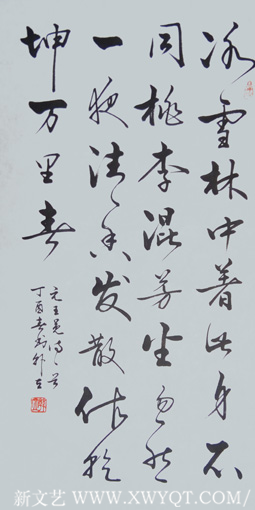 冰雪林中著此身不
同桃李混芳尘忽然
一夜清香发散作乾
坤万里春
元王冕诗一首
丁酉春
新文艺 WWW.XWYQT.COM/